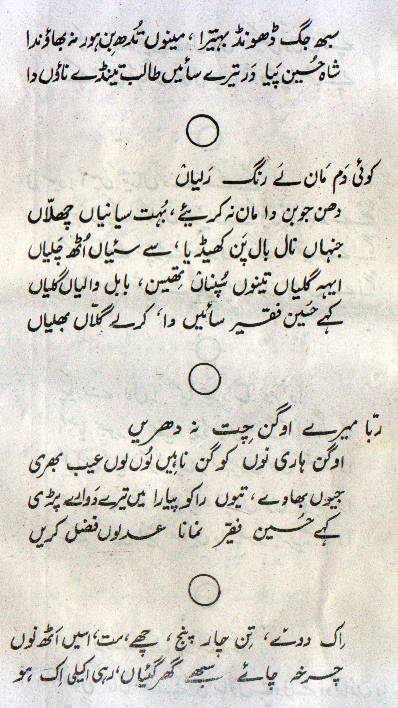 سبھ جگ ڈھونڈ بہتیرا، مینوں تُدھ بن ہور نہ بھاؤندا
شاہ حُسین پیا دَر تیرے سائیں طالب تینڈے ناؤں دا
کوئی دَم مان لَے رنگ رَلیاں
دھن جوبن دا مان نہ کریئے، بُہت سیانیاں چھلّاں
جنہاں نال بال پَن کھیڈیا، سے سئیاں اُٹھ چَلیاں
ایہہ گلیاں تینوں سُپناں تھیسن، بابل والیاں گلیاں
کہے حُسین فقیر سائیں دا، کرلے گلّاں بھلیاں
ربّا میرے اوگن چِت نہ دھریں
اوگن ہاری نوں کو گن ناہیں لُوں لُوں عیب بھری
جیوں بھاوے، تیوں راکو پیارا میں تیرے دوارے پڑی
کہے حُسین فقیر نمانا عدلوں فضل کریں
اِک دوئے، تِن چار پنج، چھے، ست، اسیں اَٹھ نوں
چرخہ چائے سبھے گھر گئیاں، رہی اکیلی اِک ہو